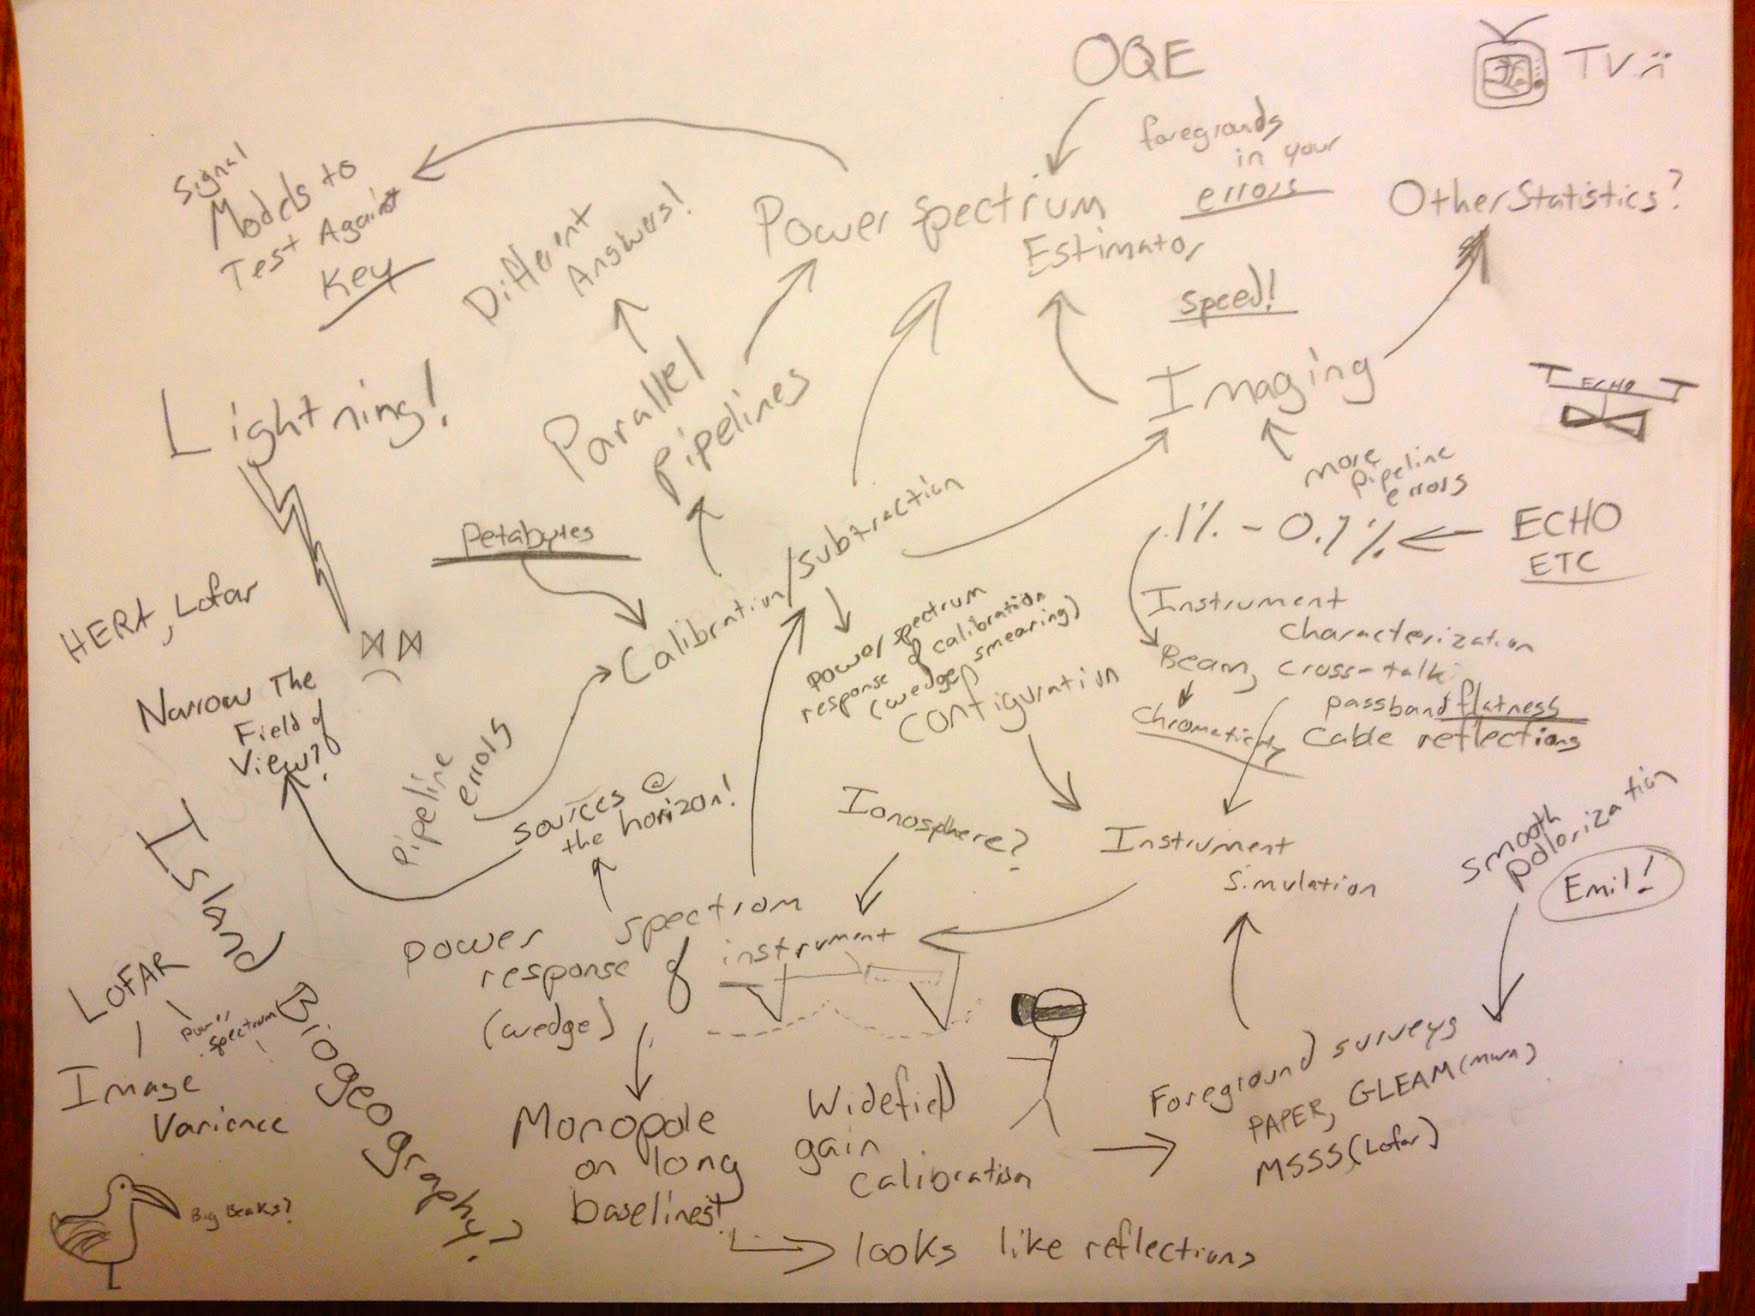 OQE
TV :(
foregrounds
in your
errors
Signal
Models to
Test Against
Key
Different
Answers!
Power Spectrum
Estimator
Other Statistics?
speed!
Lightning!
Parallel
Pipelines
Imaging
ECHO
more
pipeline
errors
.1% - 0.1%
ECHO
ETC
Petabytes
Calibration/Subtraction
HERA, Lofar
power spectrum
response of calibration
(wedge smearing)
Configuration
Instrument
characterization
Beam, cross-talk
passband flatness
Chromaticity
cable reflections
Narrow The
Field of
View?
Pipeline
errors
sources @
the horizon!
Ionosphere?
Instrument
Simulation
smooth
polarization
Emil!
Island Biogeography?
power spectrum
response of instrument
(wedge)
LOFAR
Power
spectrum
Image
Varience
Monopole
on long
baselines!
looks like reflections
Widefield
gain
calibration
Foreground surveys
PAPER, GLEAM (mwa)
MSSS (Lofar)
Big Beaks?